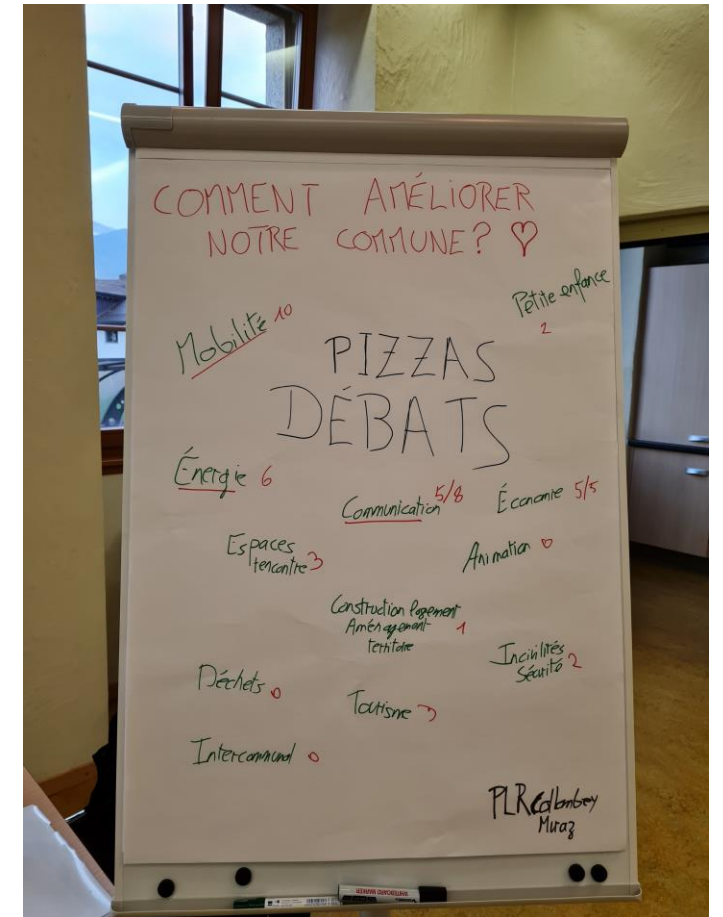 COMMENT AMÉLIORER
NOTRE COMMUNE? ♡
Petite enfance
2
Mobilité 10
PIZZAS
DÉBATS
Énergie 6
Communication 5/8
Économie 5/5
Espaces
rencontre 3
Animation 0
Construction logement
Aménagement 1
territoire
Incivilités
Sécurité 2
Déchets 0
Tourisme 3
Intercommunal 0
PLR Collombey
Muraz
WHITEBOARD MARKER